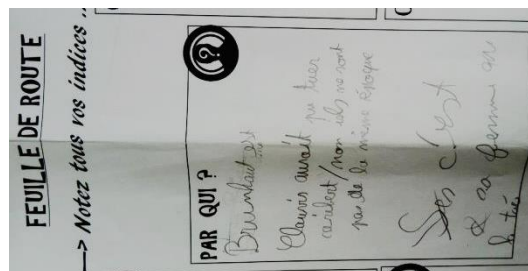 FEUILLE DE ROUTE
—> Notez tous vos indices ..
PAR QUI ?
Brunhaut est
Clauvis aurait pu tuer
caribert / non ils ne sont
pas de la même époque
c'est
sa femme